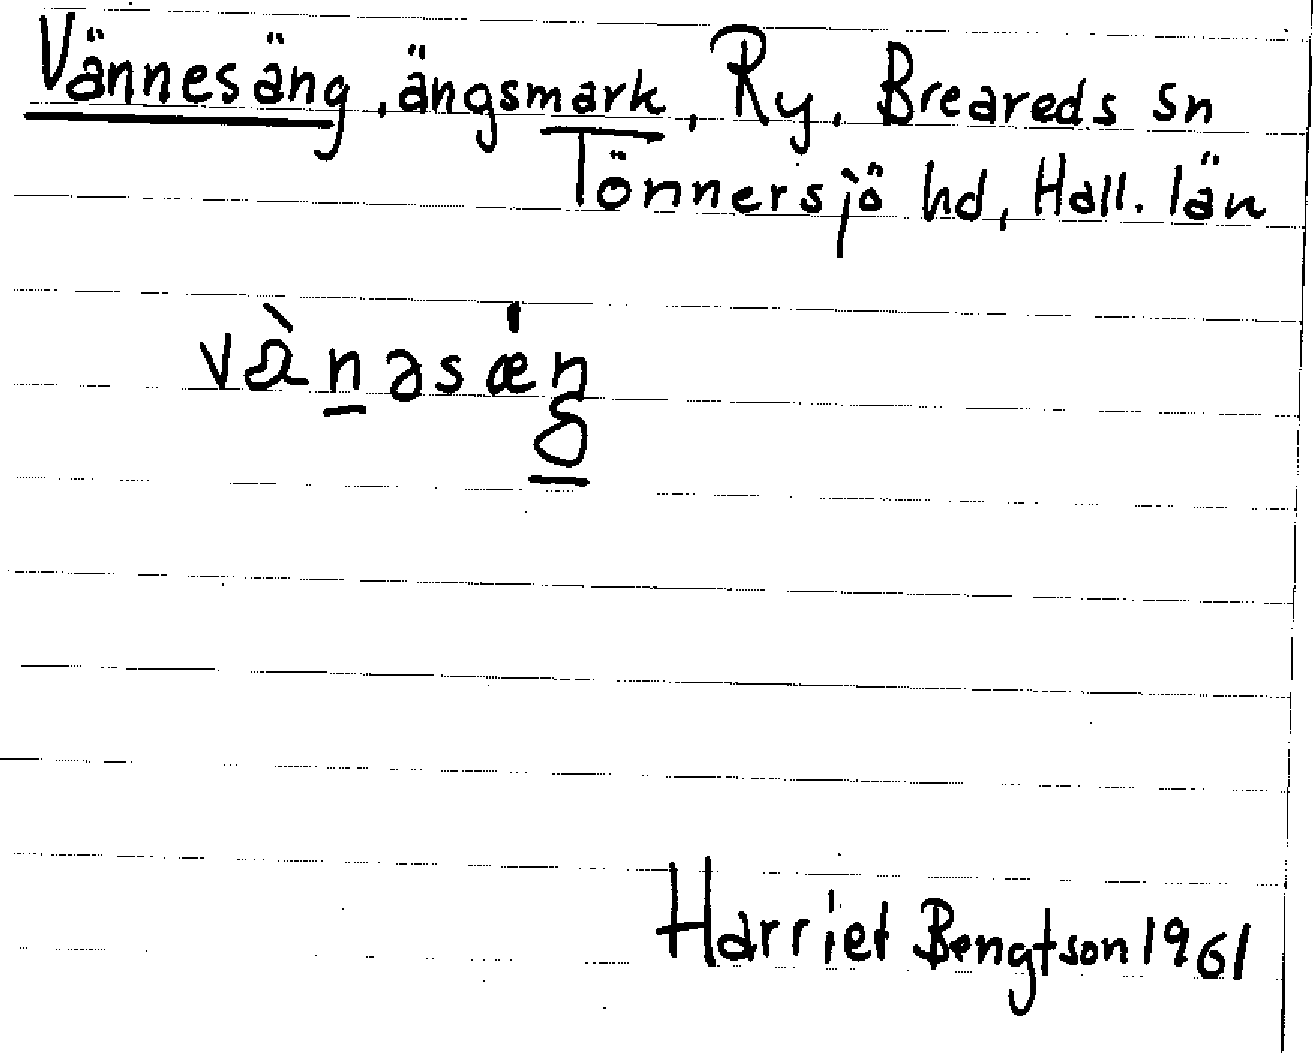 Vännesäng, ängsmark, Ry. Breareds sn
Tönnersjö hd, Hall. län
Harriet Bengtson 1961